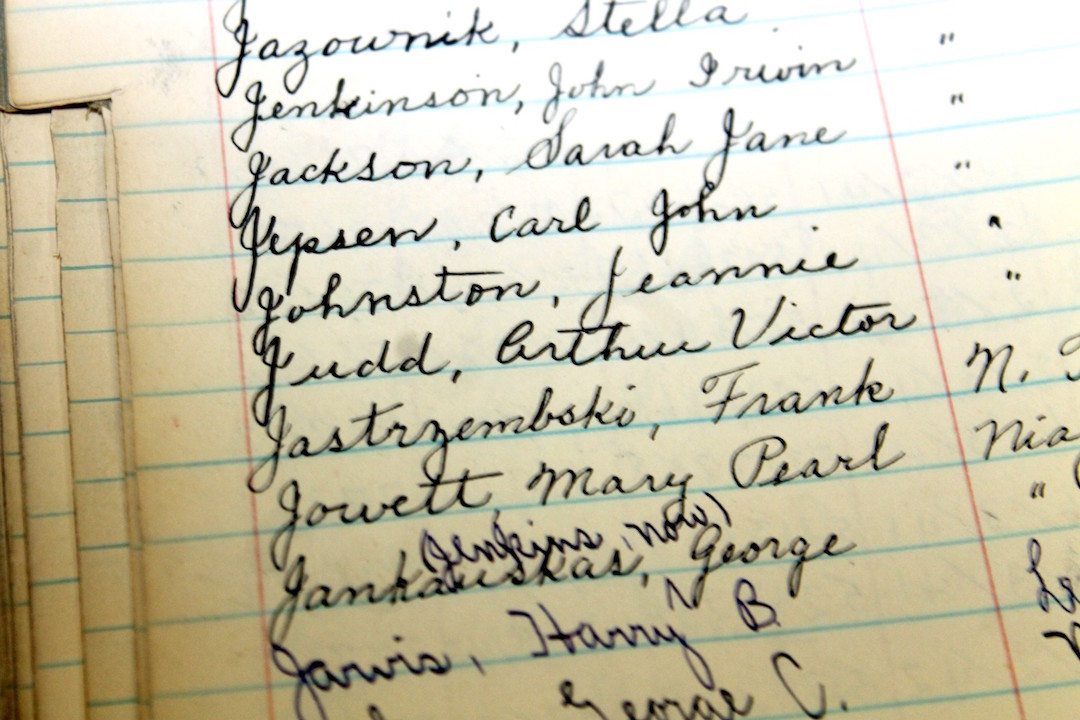 Jazownik, Stella
Jenkinson, John Irwin "
Jackson, Sarah Jane "
Jepsen, Carl John "
Johnston, Jeannie "
Judd, Arthur Victor "
Jastrzembski, Frank N.
Jowett, Mary Pearl Nia
(Jenkins, now)
Jankauskas, George "
Jarvis, Harry B
George C.